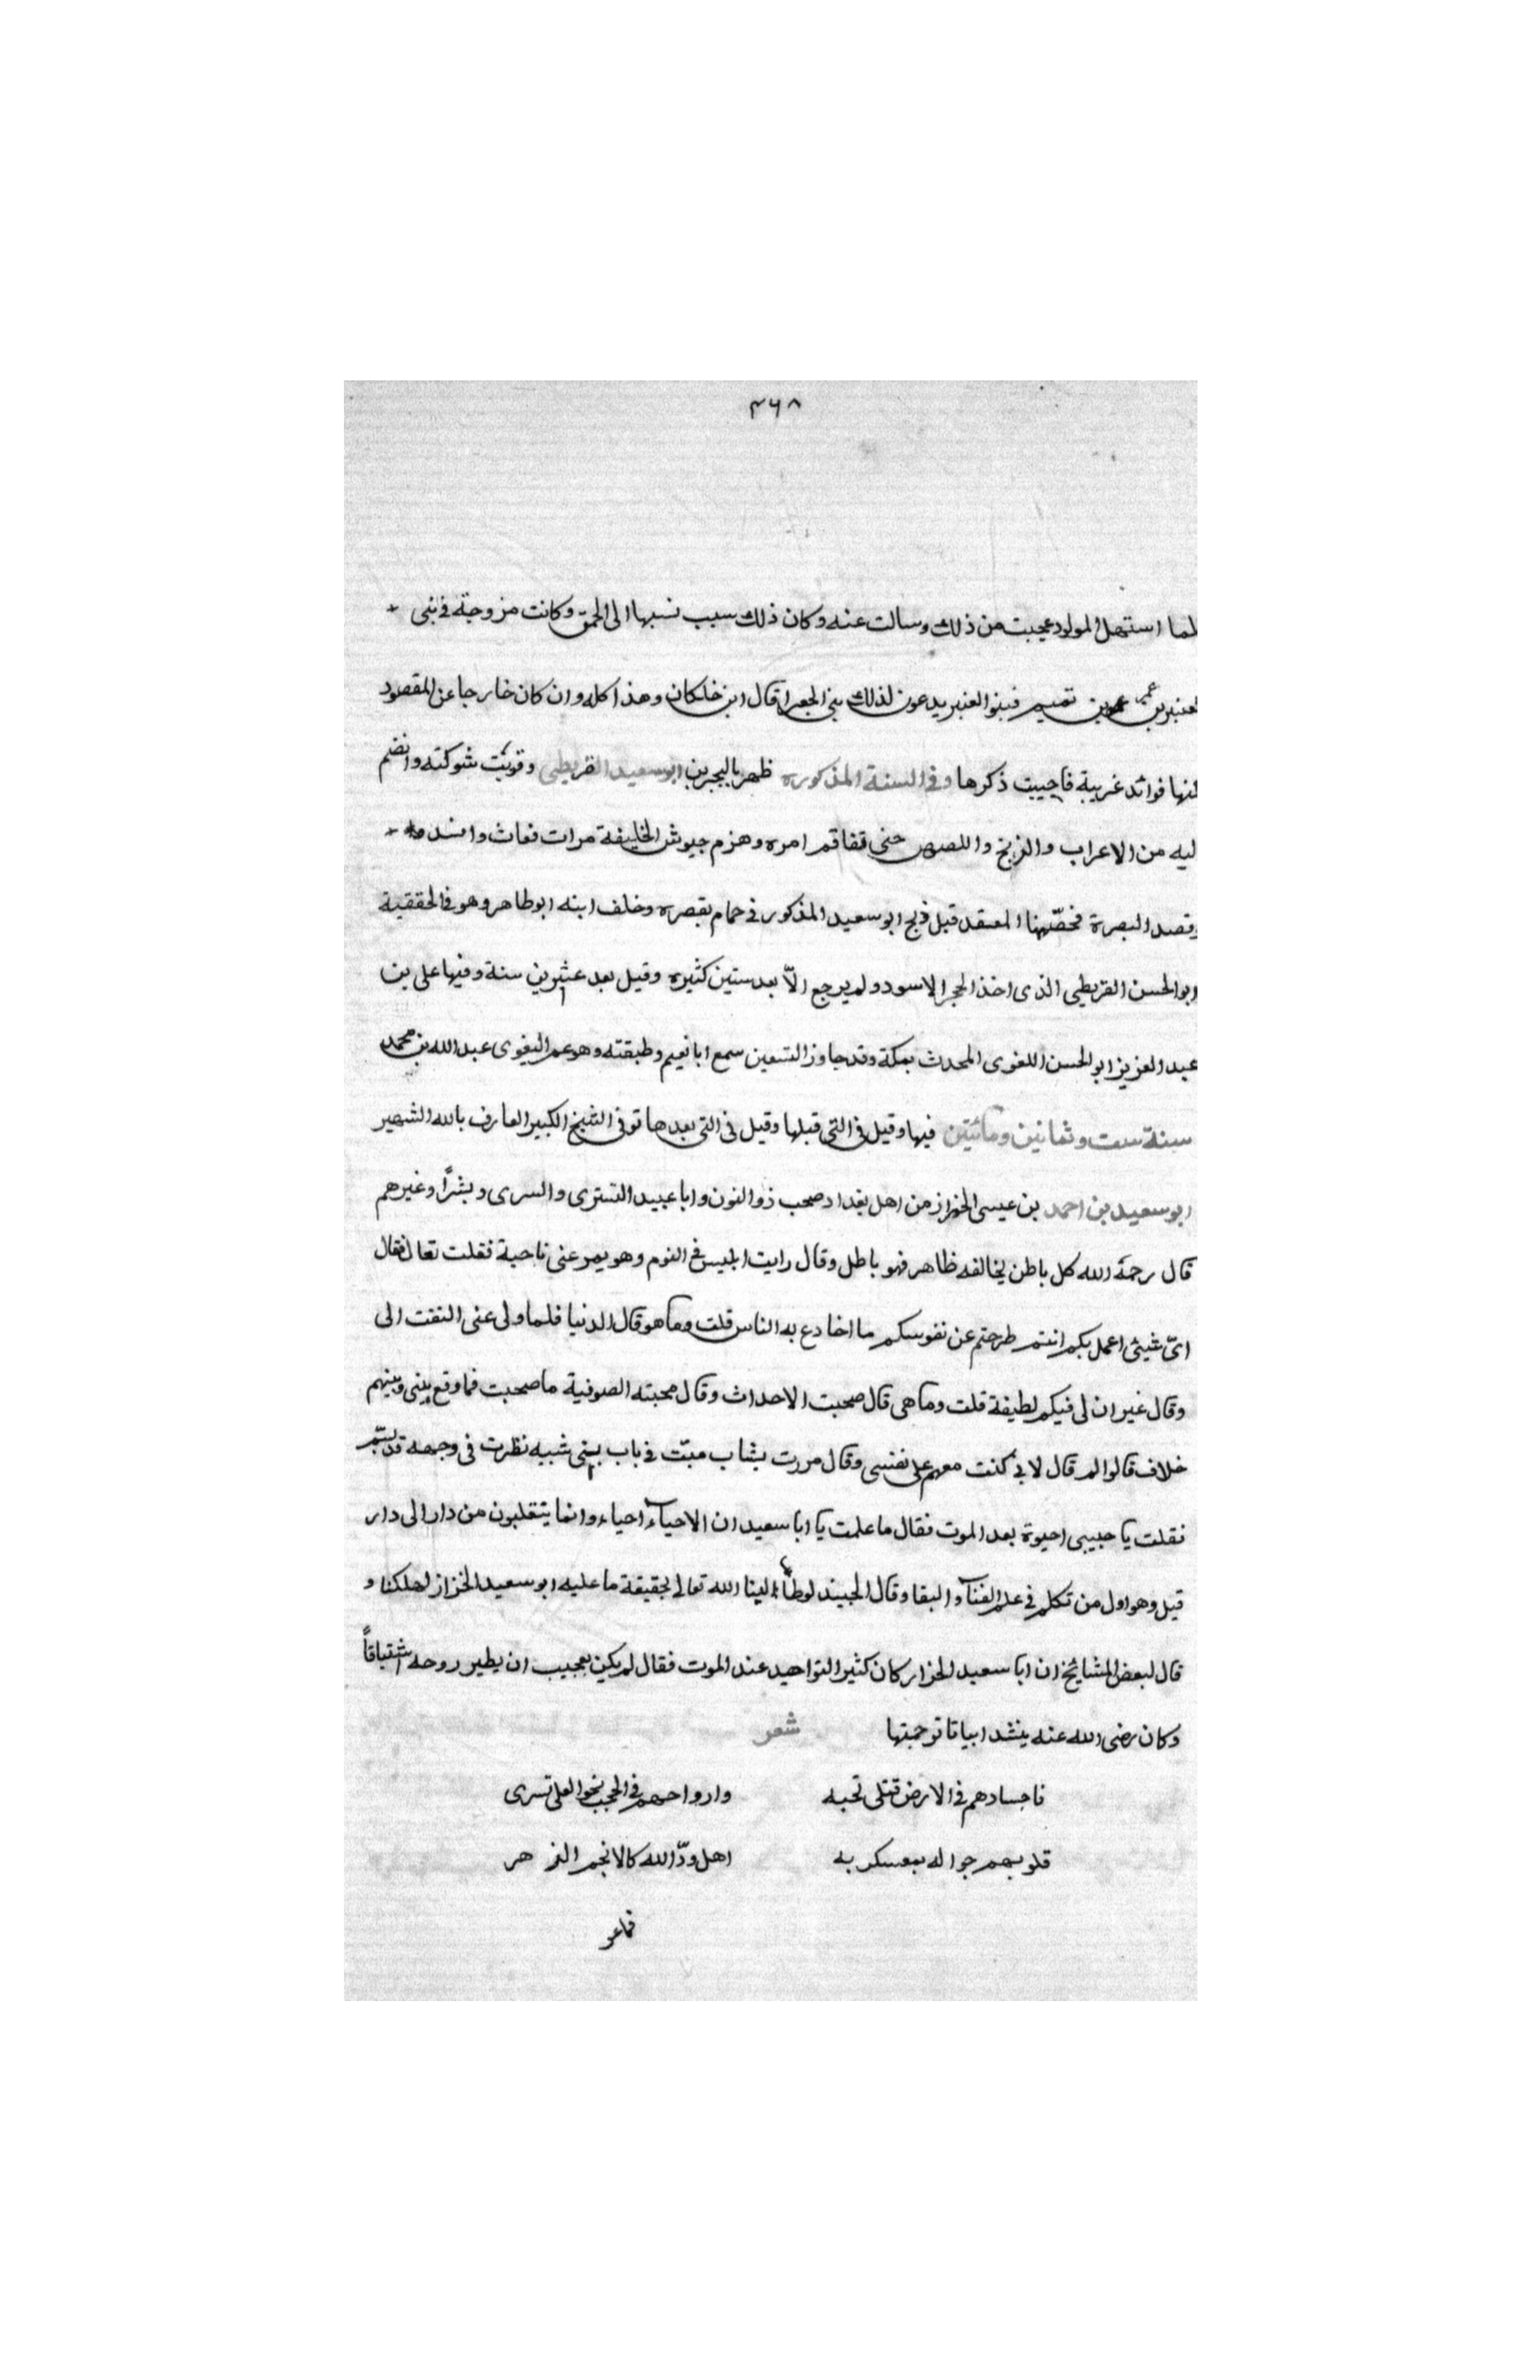 ٣٦٨
لما استهل المولود عجبت من ذلك وسالت عنه وكان ذلك سبب نسبها الى الحمق وكانت مزوجة في بنى
لعنبر بن عمرو بن تميم فبنوا العنبر يدعون لذلك بنى الجعرا قال ابن خلكان وهذا كله وان كان خارجا عن المقصود
كنها فوائد غريبة فاجيبت ذكرها وفى السنة المذكوره ظهر باليحرين ابو سعيد القريطى وقويت شوكته وانضم
ليه من الاعراب والزنج واللصوص حتى تفاقم امره وهزم جيوش الخليفة مرات فعاث وافسد
وقصد البصرة فحصّنها المعتقد قيل ذبح ابو سعيد المذكور في حمام بقصره وخلف ابنه ابو طاهر وهو في الحققية
ابو الحسن القريطى الذى اخذ الحجر الاسود ولم يرجع الاّ بعد سنين كثيره وقيل بعد عشرين سنة وفيها على بن
عبد العزيز ابو الحسن اللغوى المحدث بمكة وقد جاوز التسعين سمع ابا نعيم وطبقته وهو عم البغوى عبد الله بن محمد
سنة ست وثمانين ومائتين فيها وقيل في التى قبلها وقيل فى التى بعدها توفى الشيخ الكبير العارف بالله الشهير
ابو سعيد بن احمد بن عيسى الخراز من اهل بغداد صحب ذو النون وابا عبيد التسترى والسرى وبشراً وغيرهم
قال رحمة الله كل باطن يخالفه ظاهر فهو باطل وقال رايت ابليس في النوم وهو يمر عنى ناحية فقلت تعال فقال
اىّ شيئ اعمل بكم انتم طرحتم عن نفوسكم ما اخادع به الناس قلت وما هو قال الدنيا فلما ولى عنى التفت الى
وقال غير ان لى فيكم لطيفة قلت وما هى قال صحبت الاحداث وقال محبته الصوفية ما صحبت فما وقع بينى وبينهم
خلاف قالوا لم قال لانى كنت معهم على نفسى وقال مررت بشاب ميّت في باب بنى شيبه نظرت فى وجهه قد تبسّم
فقلت يا حبيبى احيوة بعد الموت فقال ما علمت يا ابا سعيد ان الاحياء احياء وانما يتقلبون من دار الى دار
قيل وهو اول من تكلم في علم الفناء والبقا وقال الجنيد لو طالبنا الله تعالى بحقيقة ما عليه ابو سعيد الخزاز لهلكنا و
قال لبعض المشايخ ان ابا سعيد الخزاز كان كثير التواجيد عند الموت فقال لم يكن بعجيب ان يطير روحه اشتياقاً
وكان رضى الله عنه ينشد ابياتا ترجمتها شعر
فاجسادهم في الارض قتلى تحبه وارواحهم في الحجب نحو العلى تسرى
قلوبهم جواله بمعسكر به اهل ودّ الله كالانجم الزهر
فما عر